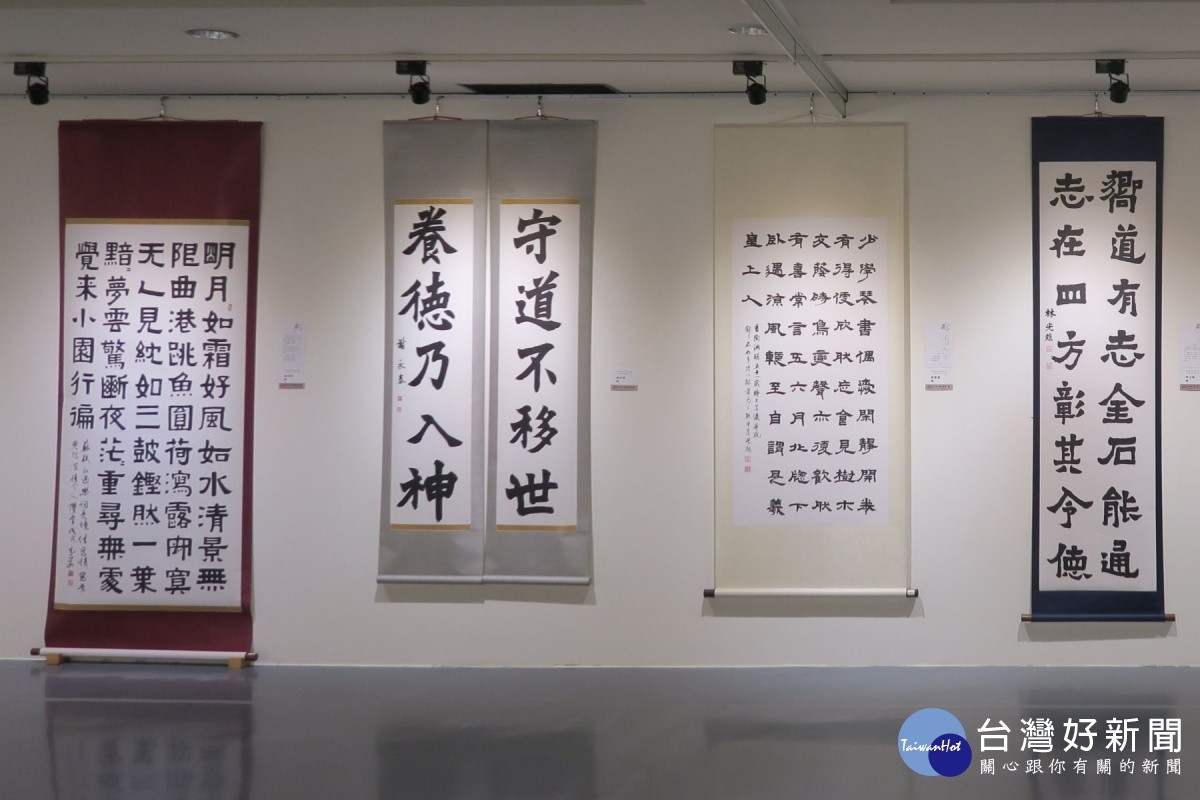 明月如霜好風如水清景無
限曲港跳魚圓荷瀉露寂寞
无人見紞如三鼓鏗然一葉
黯〻夢雲驚斷夜茫〻重尋無處
覺來小園行徧
守道不移世
養德乃入神
少學琴書偶愛閑靜開卷
有得便欣然忘食見樹木
交蔭時鳥變聲亦復歡然
有喜常言五六月北窗下
臥遇涼風暫至自謂是羲
皇上人
嚮道有志金石能通
志在四方彰其令德
TaiwanHot
台灣好新聞
關心跟你有關的新聞